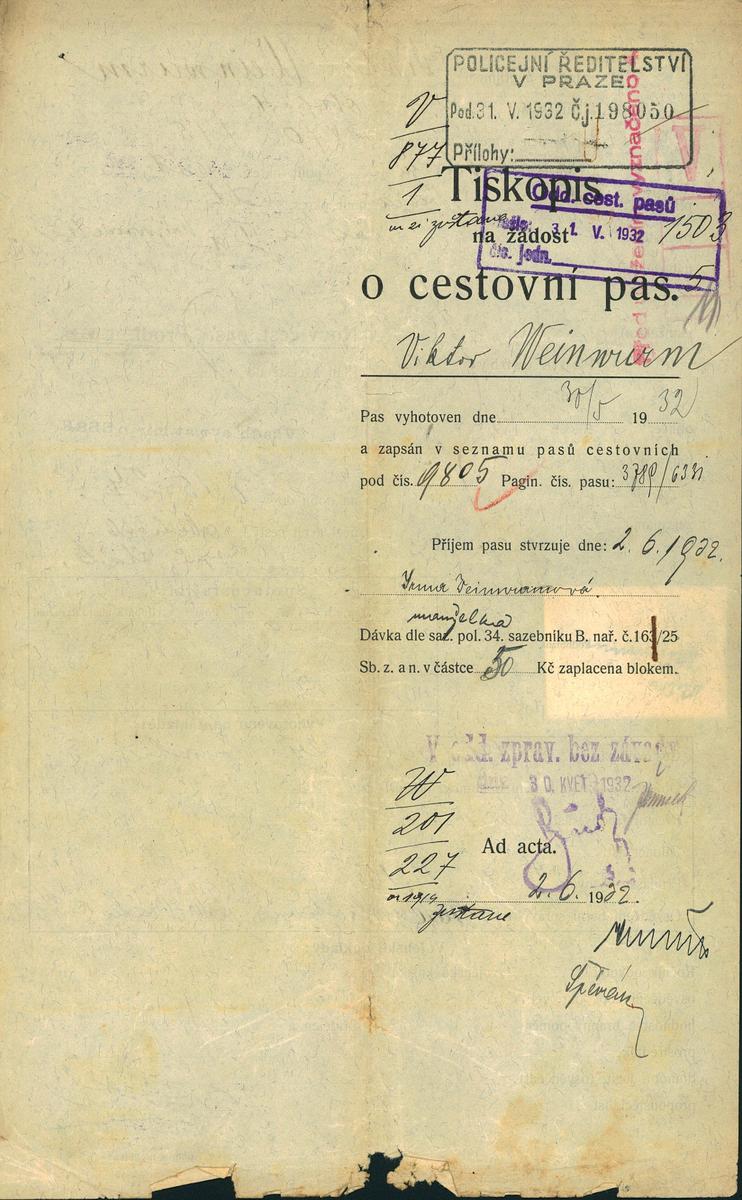 POLICEJNÍ ŘEDITELSTVÍ
V PRAZE
Pod. 31. V. 1932 Č.j. 198050
Přílohy:
V
877
1
Tiskopis
Odd. cest. pasů
31. V. 1932
1503
čís. jedn.
na žádost
5
o cestovní pas.
Viktor Weinwurm
Pas vyhotoven dne 30/5 1932
a zapsán v seznamu pasů cestovních
pod čís. 9805 Pagin. čís. pasu:
Příjem pasu stvrzuje dne: 2.6.1932.
Irma Weinwurmová
manželka
Dávka dle saz. pol. 34. sazebníku B. nař. č. 163/25
Sb. z. a n. v částce 50 Kč zaplacena blokem.
V odd. zprav. bez závady
dne 30. KVĚT. 1932
201
227
Ad acta.
2.6. 1932.